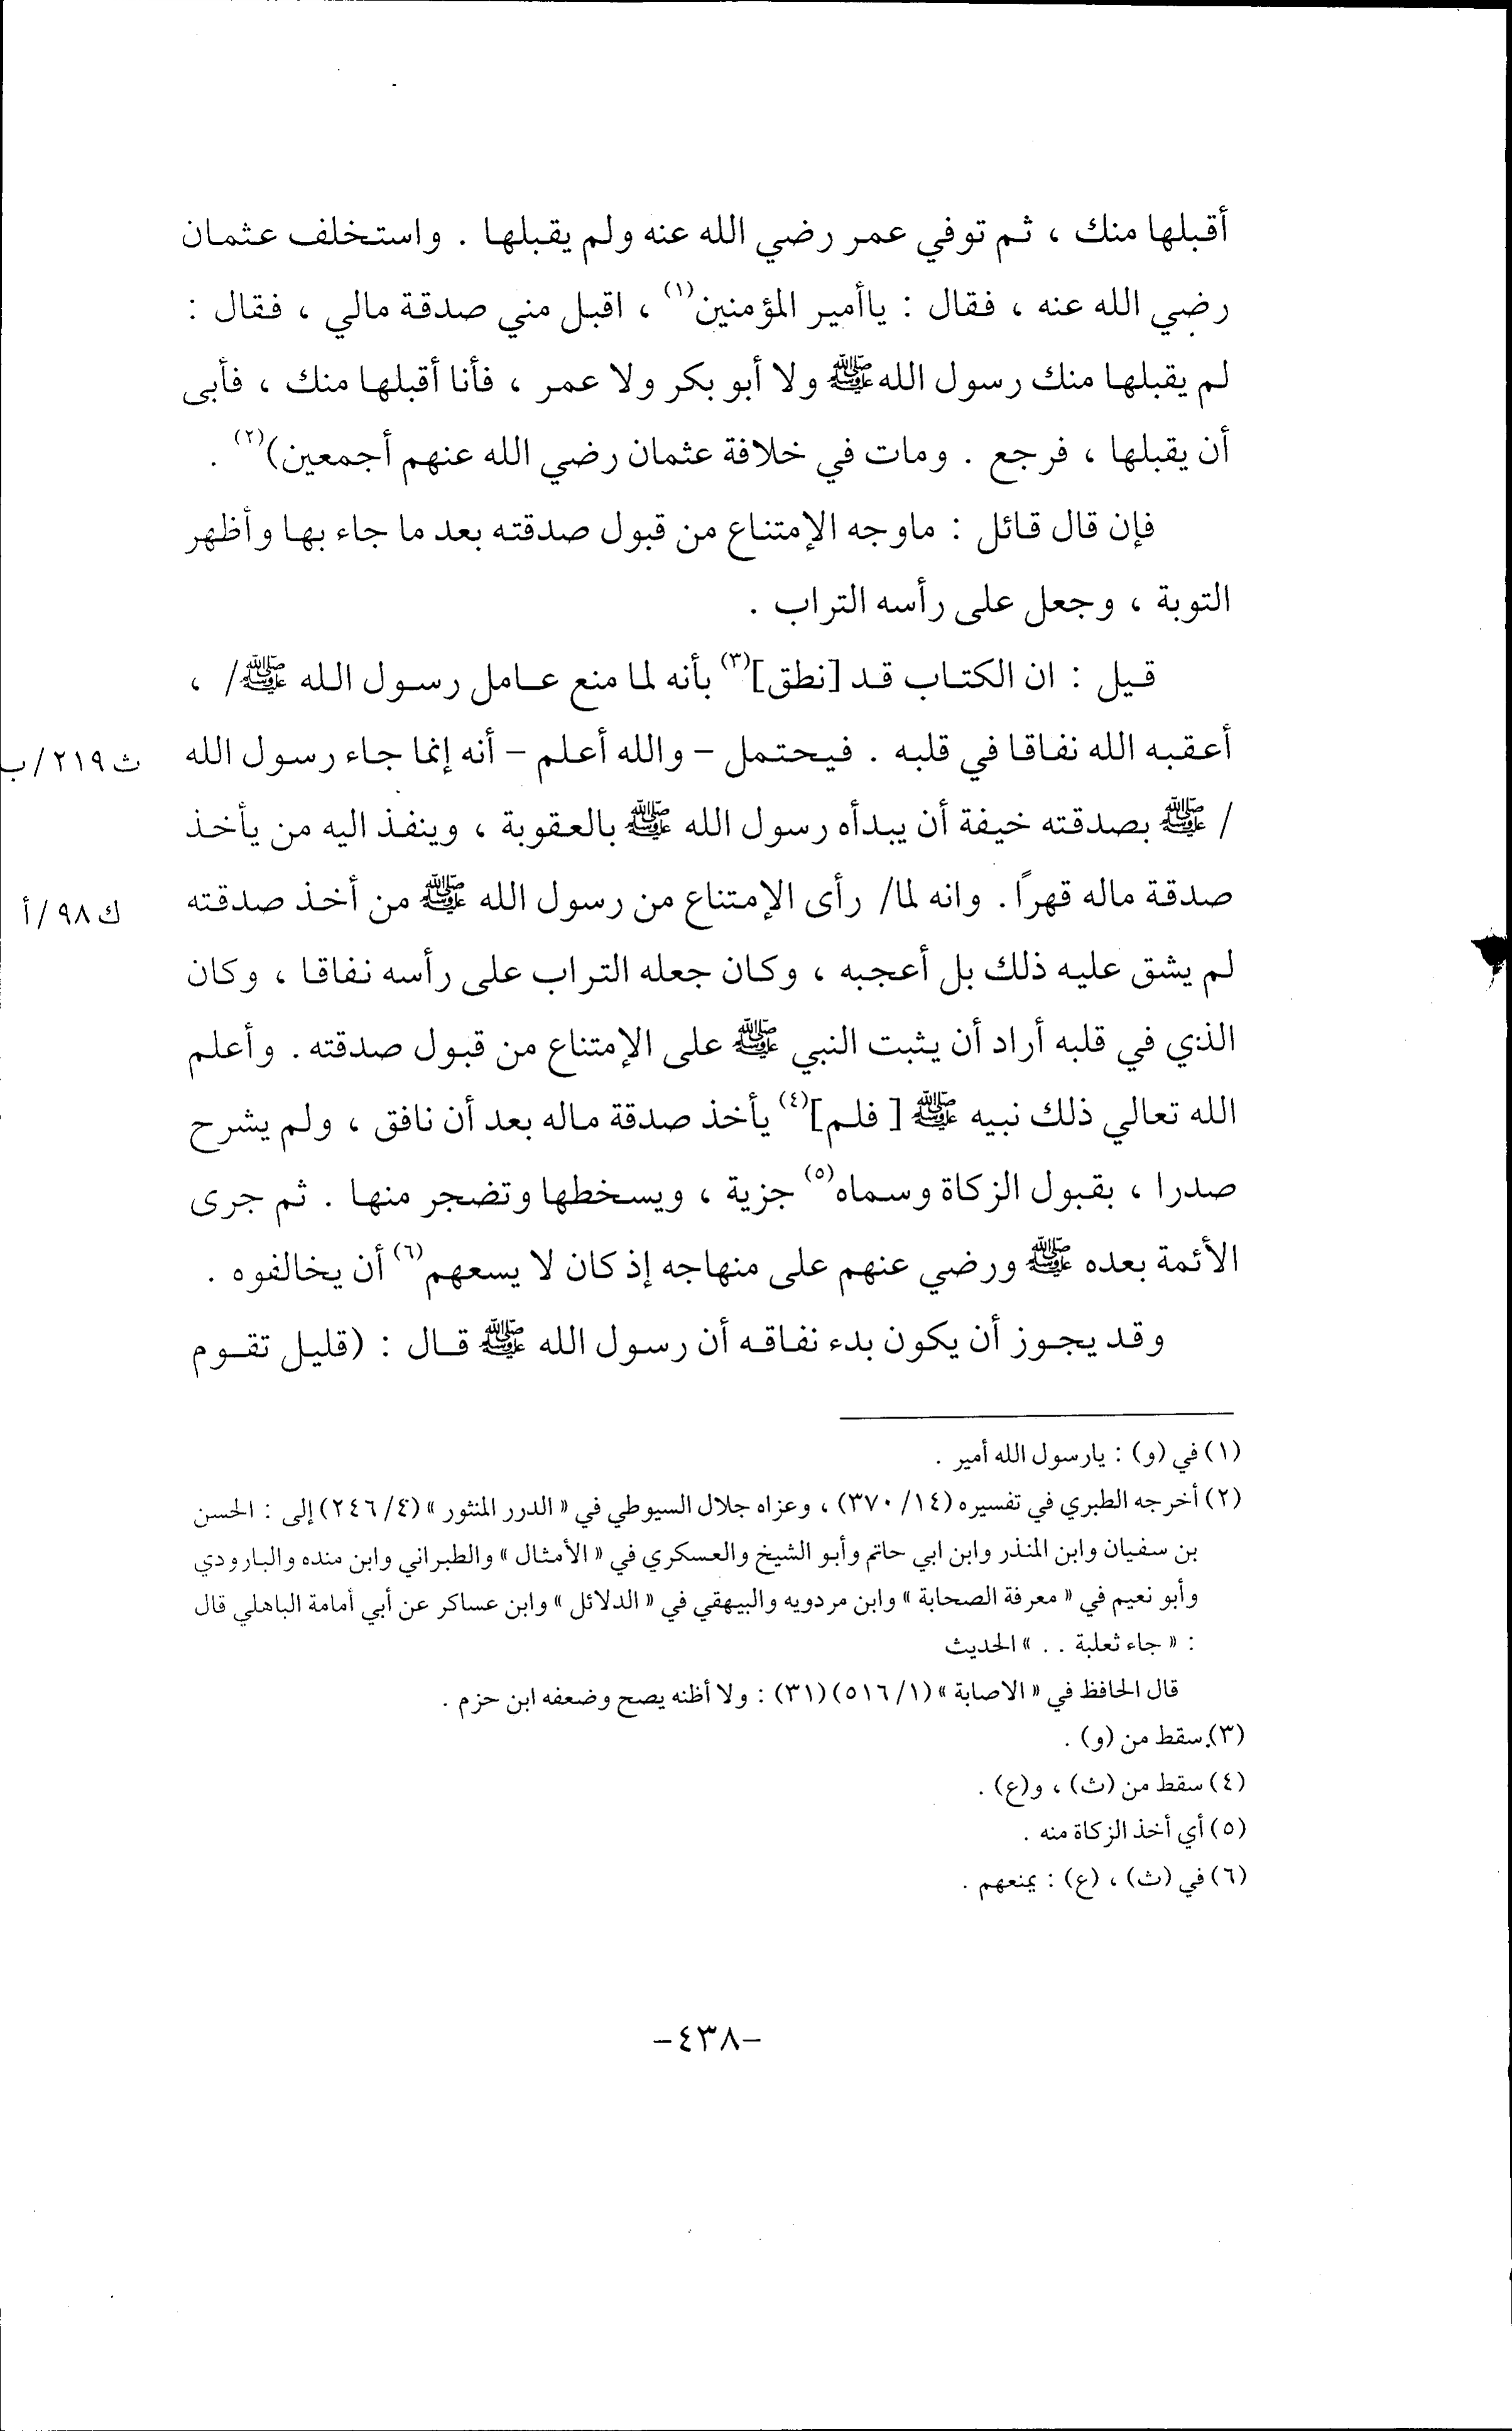 أقبلها منك ، ثم توفي عمر رضي الله عنه ولم يقبلها . واستخلف عثمان
رضي الله عنه ، فقال : ياأمير المؤمنين(١) ، اقبل مني صدقة مالي ، فقال :
لم يقبلها منك رسول الله ﷺ ولا أبو بكر ولا عمر ، فأنا أقبلها منك ، فأبى
أن يقبلها ، فرجع . ومات في خلافة عثمان رضي الله عنهم أجمعين)(٢) .
فإن قال قائل : ماوجه الإمتناع من قبول صدقته بعد ما جاء بها وأظهر
التوبة ، وجعل على رأسه التراب .
قيل : ان الكتاب قد [نطق](٣) بأنه لما منع عامل رسول الله ﷺ/ ،
أعقبه الله نفاقا في قلبه . فيحتمل - والله أعلم - أنه إنما جاء رسول الله
ث ٢١٩/ب
/ ﷺ بصدقته خيفة أن يبدأه رسول الله ﷺ بالعقوبة ، وينفذ اليه من يأخذ
صدقة ماله قهرًا . وانه لما/ رأى الإمتناع من رسول الله ﷺ من أخذ صدقته
ك ٩٨/أ
لم يشق عليه ذلك بل أعجبه ، وكان جعله التراب على رأسه نفاقا ، وكان
الذي في قلبه أراد أن يثبت النبي ﷺ على الإمتناع من قبول صدقته . وأعلم
الله تعالي ذلك نبيه ﷺ [ فلم](٤) يأخذ صدقة ماله بعد أن نافق ، ولم يشرح
صدرا ، بقبول الزكاة وسماه(٥) جزية ، ويسخطها وتضجر منها . ثم جرى
الأئمة بعده ﷺ ورضي عنهم على منهاجه إذ كان لا يسعهم(٦) أن يخالفوه .
وقد يجوز أن يكون بدء نفاقه أن رسول الله ﷺ قال : (قليل تقوم
(١) في (و) : يارسول الله أمير .
(٢) أخرجه الطبري في تفسيره (١٤/ ٣٧٠) ، وعزاه جلال السيوطي في « الدرر المنثور » (٤/ ٢٤٦) إلى : الحسن
بن سفيان وابن المنذر وابن ابي حاتم وأبو الشيخ والعسكري في « الأمثال » والطبراني وابن منده والبارودي
وأبو نعيم في « معرفة الصحابة » وابن مردويه والبيهقي في « الدلائل » وابن عساكر عن أبي أمامة الباهلي قال
: « جاء ثعلبة . . » الحديث
قال الحافظ في « الاصابة » (١/ ٥١٦) (٣١) : ولا أظنه يصح وضعفه ابن حزم .
(٣) سقط من (و) .
(٤) سقط من (ث) ، و(ع) .
(٥) أي أخذ الزكاة منه .
(٦) في (ث) ، (ع) : يمنعهم .
-٤٣٨-